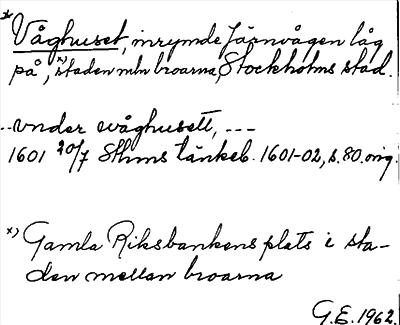 *
Våghuset, inrymde Järnvågen låg
på, *) staden mln broarna, Stockholms stad.
..vnder wåghusett, ---
1601 20/7 Sthms tänkeb. 1601-02, s. 80. orig.
*) Gamla Riksbankens plats i sta-
den mellan broarna
G.E. 1962.